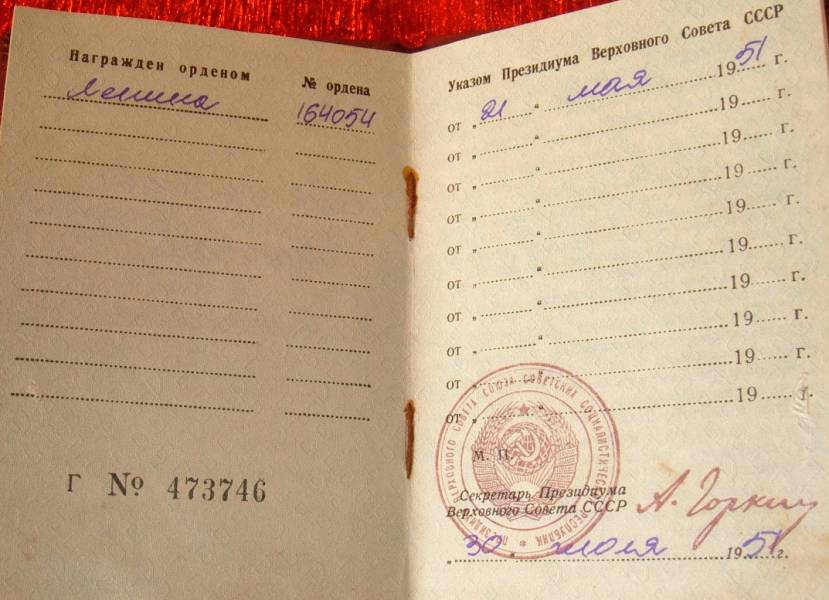 Награжден орденом
№ ордена
Ленина
164054
Г № 473746
Указом Президиума Верховного Совета СССР
от „ 21 “ мая 1951 г.
от „ “ 19 г.
от „ “ 19 г.
от „ “ 19 г.
от „ “ 19 г.
от „ “ 19 г.
от „ “ 19 г.
от „ “ 19 г.
от „ “ 19 г.
от „ “ 19 г.
ПРЕЗИДИУМ ВЕРХОВНОГО СОВЕТА СОЮЗА СОВЕТСКИХ СОЦИАЛИСТИЧЕСКИХ РЕСПУБЛИК
М. П.
Секретарь Президиума
Верховного Совета СССР
А. Горкин
„ 30 “ июля 1951 г.